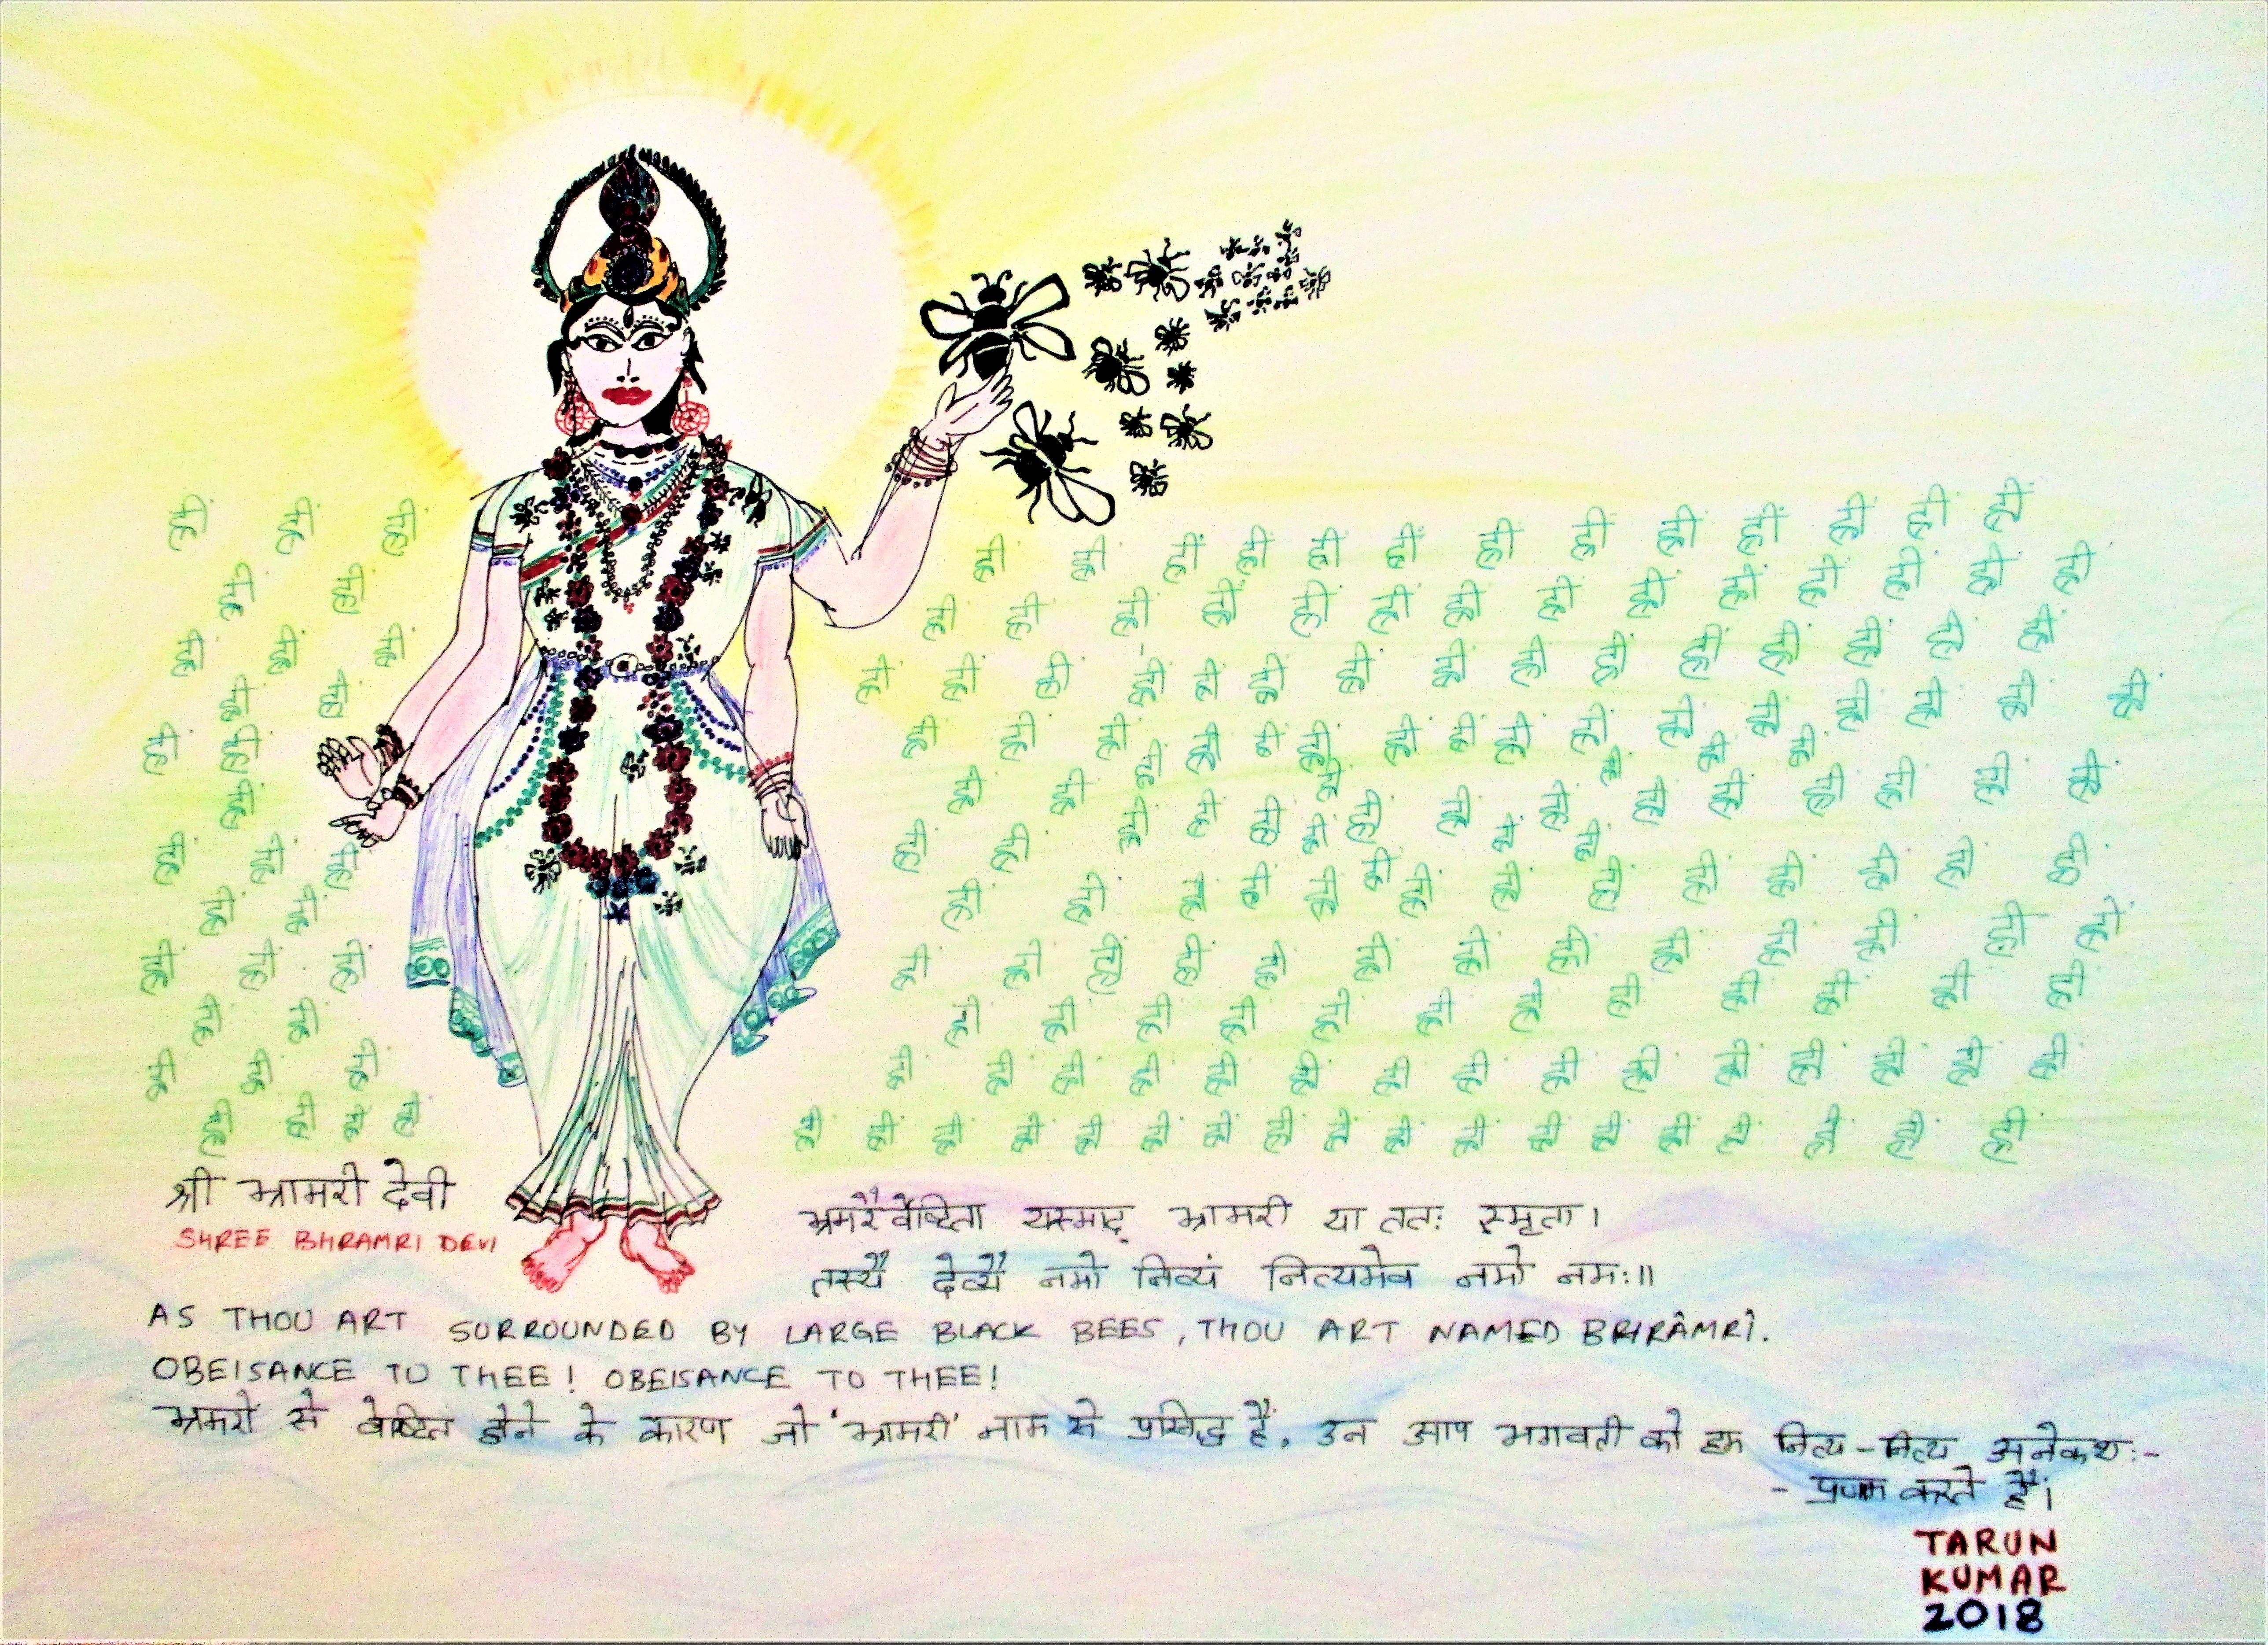 श्री भ्रामरी देवी
SHREE BHRAMRI DEVI
भ्रमरैर्वेष्टिता यस्माद् भ्रामरी या ततः स्मृता।
तस्यै देव्यै नमो नित्यं नित्यमेव नमो नमः॥
AS THOU ART SURROUNDED BY LARGE BLACK BEES, THOU ART NAMED BHRÂMRÎ.
OBEISANCE TO THEE! OBEISANCE TO THEE!
भ्रमरों से वेष्टित होने के कारण जो 'भ्रामरी' नाम से प्रसिद्ध हैं, उन आप भगवती को हम नित्य-नित्य अनेकशः-
- प्रणाम करते हैं।
TARUN
KUMAR
2018